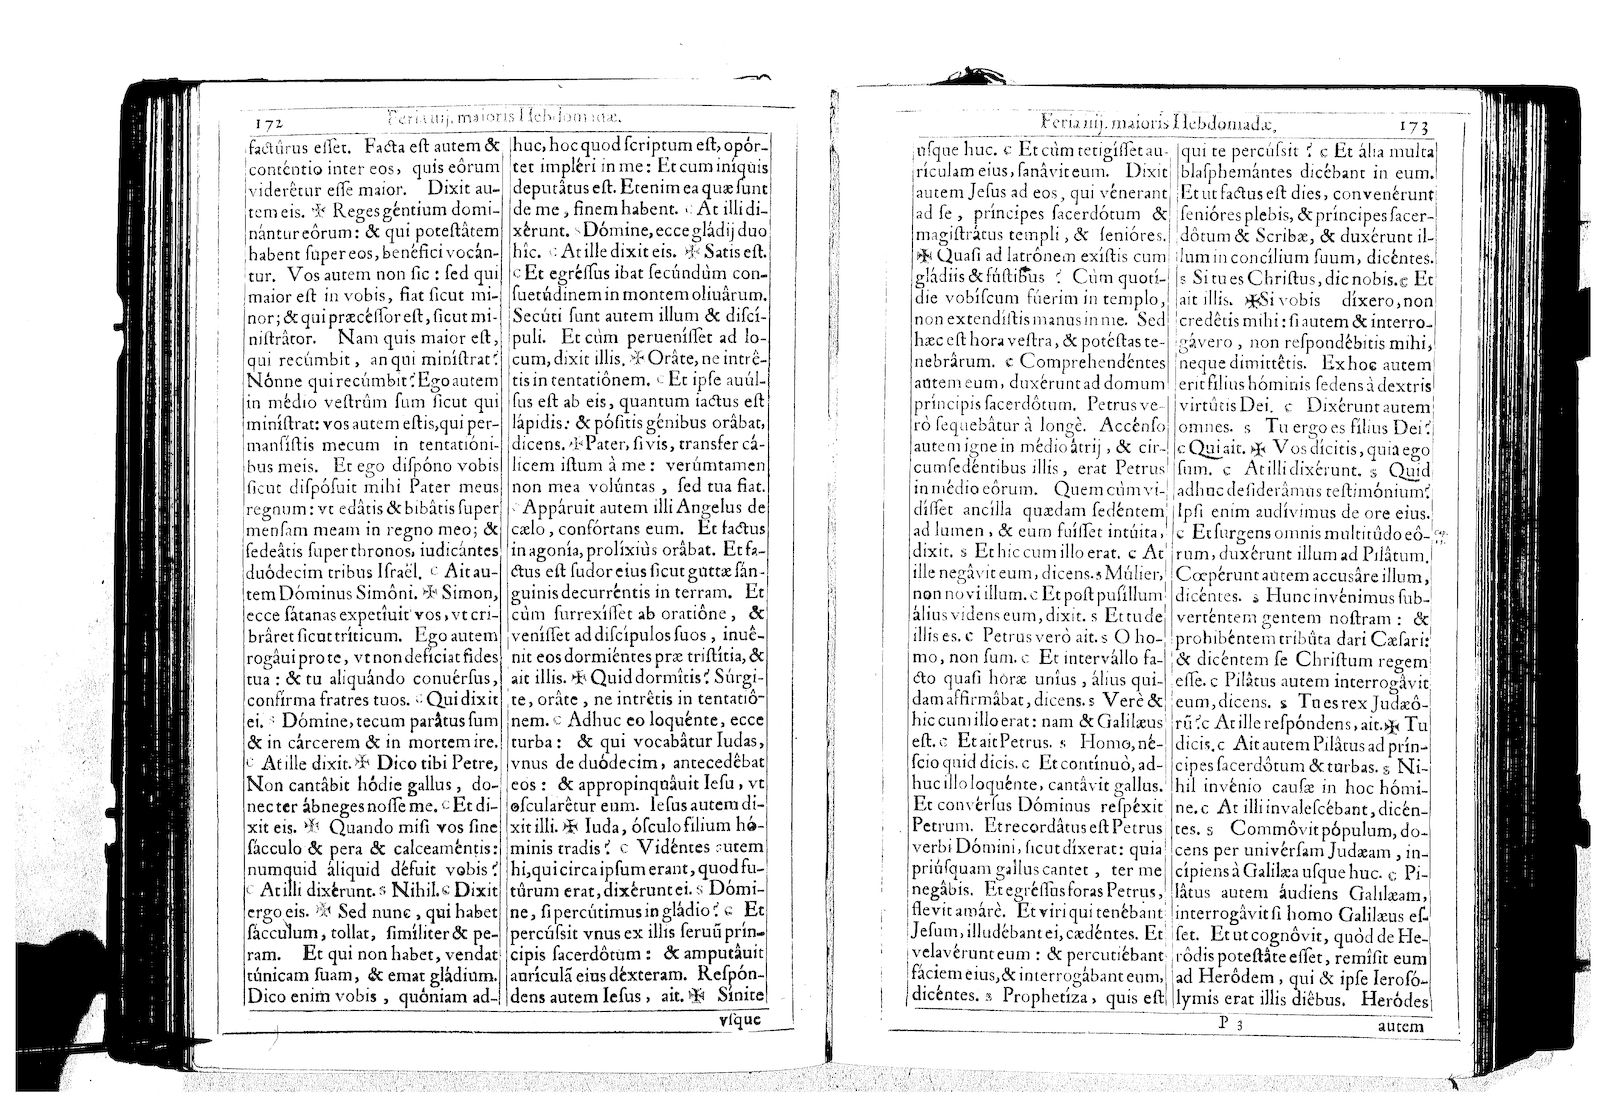 172
Feria iiij. maioris Hebdomadæ.
factûrus eſſet. Facta eſt autem &
conténtio inter eos, quis eôrum
viderêtur eſſe maior. Dixit au-
tem eis. ✠ Reges géntium domi-
nántur eôrum: & qui poteſtâtem
habent ſuper eos, benéfici vocán-
tur. Vos autem non ſic: ſed qui
maior eſt in vobis, fiat ſicut mi-
nor; & qui præcéſſor eſt, ſicut mi-
niſtrâtor. Nam quis maior eſt,
qui recúmbit, an qui miníſtrat?
Nónne qui recúmbit? Ego autem
in médio veſtrûm ſum ſicut qui
miníſtrat: vos autem eſtis, qui per-
manſíſtis mecum in tentatióni-
bus meis. Et ego diſpóno vobis
ſicut diſpóſuit mihi Pater meus
regnum: vt edâtis & bibâtis ſuper
menſam meam in regno meo; &
ſedeâtis ſuper thronos, iudicántes
duódecim tribus Iſraël. C Ait au-
tem Dóminus Simôni. ✠ Simon,
ecce ſátanas expetíuit vos, vt cri-
brâret ſicut tríticum. Ego autem
rogâui pro te, vt non defíciat fides
tua: & tu aliquándo conuérſus,
confírma fratres tuos. C Qui dixit
ei. S Dómine, tecum parâtus ſum
& in cárcerem & in mortem ire.
C At ille dixit. ✠ Dico tibi Petre,
Non cantâbit hódie gallus, do-
nec ter ábneges noſſe me. C Et di-
xit eis. ✠ Quando miſi vos ſine
ſácculo & pera & calceaméntis:
numquid áliquid défuit vobis?
C At illi dixérunt. S Nihil. C Dixit
ergo eis. ✠ Sed nunc, qui habet
ſácculum, tollat, ſimíliter & pe-
ram. Et qui non habet, vendat
túnicam ſuam, & emat gládium.
Dico enim vobis, quóniam ad-
huc, hoc quod ſcriptum eſt, opór-
tet impléri in me: Et cum iníquis
deputâtus eſt. Etenim ea quæ ſunt
de me, finem habent. C At illi di-
xérunt. S Dómine, ecce gládij duo
hîc. C At ille dixit eis. ✠ Satis eſt.
C Et egréſſus ibat ſecúndùm con-
ſuetúdinem in montem oliuârum.
Secúti ſunt autem illum & diſcí-
puli. Et cùm perueníſſet ad lo-
cum, dixit illis. ✠ Orâte, ne intrê-
tis in tentatiônem. C Et ipſe auúl-
ſus eſt ab eis, quantum iactus eſt
lápidis: & póſitis génibus orâbat,
dicens. ✠ Pater, ſi vis, transfer cá-
licem iſtum à me: verúmtamen
non mea volúntas, ſed tua fiat.
C Appáruit autem illi Angelus de
cælo, confórtans eum. Et factus
in agonía, prolíxiùs orâbat. Et fa-
ctus eſt ſudor eius ſicut guttæ ſán-
guinis decurréntis in terram. Et
cùm ſurrexíſſet ab oratiône, &
veníſſet ad diſcípulos ſuos, inuê-
nit eos dormiéntes præ triſtítia, &
ait illis. ✠ Quid dormítis? Súrgi-
te, orâte, ne intrêtis in tentatiô-
nem. C Adhuc eo loquénte, ecce
turba: & qui vocabâtur Iudas,
vnus de duódecim, antecedêbat
eos: & appropinquâuit Ieſu, vt
oſcularêtur eum. Ieſus autem di-
xit illi. ✠ Iuda, óſculo filium hó-
minis tradis? C Vidéntes autem
hi, qui circa ipſum erant, quod fu-
tûrum erat, dixérunt ei. S Dómi-
ne, ſi percútimus in gládio? C Et
percúſsit vnus ex illis ſeruũ prín-
cipis ſacerdôtum: & amputâuit
aurículã eius déxteram. Reſpón-
dens autem Ieſus, ait. ✠ Sínite
vſque
Feria iiij. maioris Hebdomadæ,
173
uſque huc. C Et cùm tetigíſſet au-
rículam eius, ſanâvit eum. Dixit
autem Jeſus ad eos, qui vénerant
ad ſe, príncipes ſacerdótum &
magiſtrâtus templi, & ſenióres.
✠ Quaſi ad latrónem exíſtis cum
gládiis & fúſtibus? Cùm quotí-
die vobíſcum fúerim in templo,
non extendíſtis manus in me. Sed
hæc eſt hora veſtra, & potéſtas te-
nebrârum. C Comprehendéntes
autem eum, duxérunt ad domum
príncipis ſacerdôtum. Petrus ve-
rò ſequebâtur à longè. Accénſo
autem igne in médio átrij, & cir-
cumſedéntibus illis, erat Petrus
in médio eôrum. Quem cùm vi-
díſſet ancílla quædam ſedéntem
ad lumen, & eum fuíſſet intúita,
dixit. S Et hic cum illo erat. C At
ille negâvit eum, dicens. S Múlier,
non novi illum. C Et poſt puſíllum
álius videns eum, dixit. S Et tu de
illis es. C Petrus verò ait. S O ho-
mo, non ſum. C Et intervállo fa-
cto quaſi horæ uníus, álius qui-
dam affirmâbat, dicens. S Verè &
hic cum illo erat: nam & Galilæus
eſt. C Et ait Petrus. S Homo, né-
ſcio quid dicis. C Et contínuò, ad-
huc illo loquénte, cantâvit gallus.
Et convérſus Dóminus reſpéxit
Petrum. Et recordâtus eſt Petrus
verbi Dómini, ſicut díxerat: quia
priúſquam gallus cantet, ter me
negâbis. Et egréſſus foras Petrus,
flevit amárè. Et viri qui tenêbant
Jeſum, illudêbant ei, cædéntes. Et
velavérunt eum: & percutiêbant
fáciem eius, & interrogâbant eum,
dicéntes. S Prophetíza, quis eſt
qui te percúſsit? C Et ália multa
blaſphemántes dicêbant in eum.
Et ut factus eſt dies, convenérunt
ſenióres plebis, & príncipes ſacer-
dôtum & Scribæ, & duxérunt il-
lum in concílium ſuum, dicéntes.
S Si tu es Chriſtus, dic nobis. C Et
ait illis. ✠ Si vobis díxero, non
credêtis mihi: ſi autem & interro-
gávero, non reſpondébitis mihi,
neque dimittêtis. Ex hoc autem
erit filius hóminis ſedens à dextris
virtûtis Dei. C Dixérunt autem
omnes. S Tu ergo es fílius Dei?
C Qui ait. ✠ Vos dícitis, quia ego
ſum. C At illi dixérunt. S Quid
adhuc deſiderâmus teſtimónium?
Ipſi enim audívimus de ore eius.
C Et ſurgens omnis multitûdo eô-
rum, duxérunt illum ad Pilâtum.
Cœpérunt autem accusâre illum,
dicéntes. S Hunc invénimus ſub-
verténtem gentem noſtram: &
prohibéntem tribûta dari Cæſari:
& dicéntem ſe Chriſtum regem
eſſe. C Pilâtus autem interrogâvit
eum, dicens. S Tu es rex Judæô-
rũ? C At ille reſpóndens, ait. ✠ Tu
dicis. C Ait autem Pilâtus ad prín-
cipes ſacerdôtum & turbas. S Ni-
hil invénio cauſæ in hoc hómi-
ne. C At illi invaleſcêbant, dicén-
tes. S Commôvit pópulum, do-
cens per univérſam Judæam, in-
cípiens à Galilæa uſque huc. C Pi-
lâtus autem áudiens Galilæam,
interrogâvit ſi homo Galilæus eſ-
ſet. Et ut cognôvit, quòd de He-
rôdis poteſtâte eſſet, remíſit eum
ad Herôdem, qui & ipſe Ieroſó-
lymis erat illis diêbus. Heródes
P 3
autem